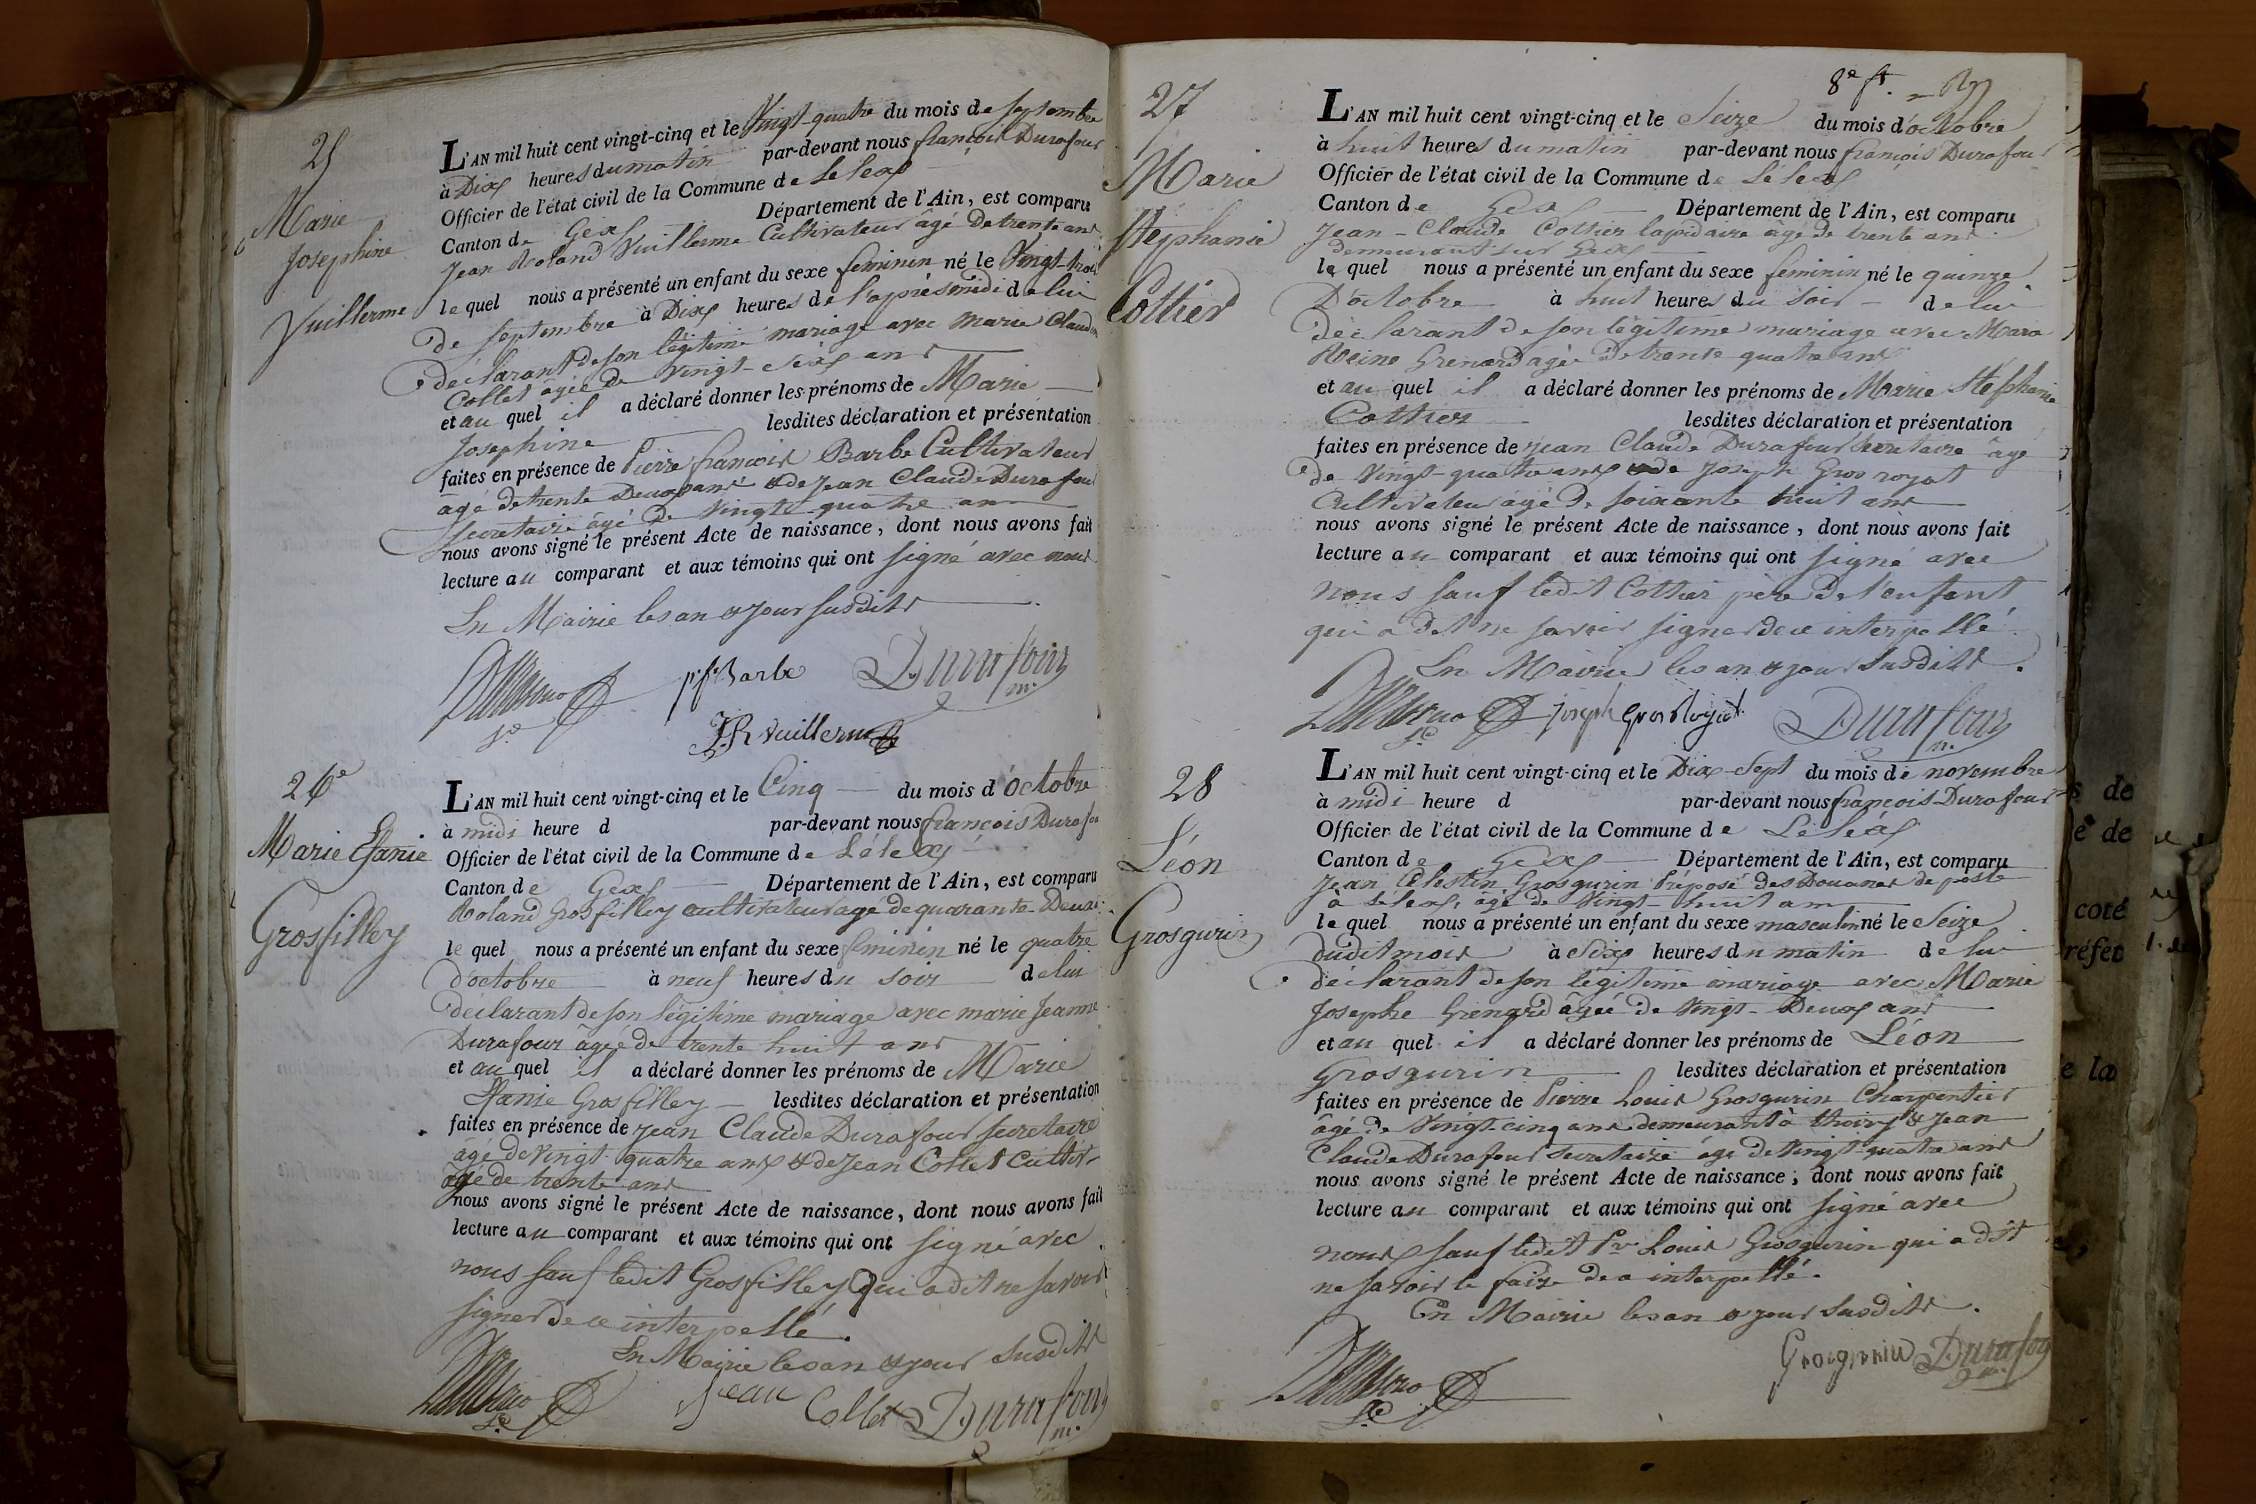 25
Marie
Josephine
Vuillerme
L'AN mil huit cent vingt-cinq et le Vingt-quatre du mois de septembre
à Dix heures du matin par-devant nous françois Durafour
Officier de l'état civil de la Commune de Lélex
Canton de Gex Département de l'Ain, est comparu
Jean Roland Vuillerme Cultivateur âgé de trente ans
lequel nous a présenté un enfant du sexe feminin né le Vingt-trois
de septembre à Dix heures de l'après midi de lui
déclarant de son légitime mariage avec Marie Claudine
Collet âgée de vingt-six ans
et au quel il a déclaré donner les prénoms de Marie
Josephine lesdites déclaration et présentation
faites en présence de Pierre françois Barbe Cultivateur
âgé de trente Deux ans & de Jean Claude Durafour
secretaire âgé de vingt quatre ans
nous avons signé le présent Acte de naissance, dont nous avons fait
lecture au comparant et aux témoins qui ont signé avec nous
En Mairie les an & jour susdits
p. f. Barbe Durafour
J. R Vuillerme
26
Marie Efanie
Grosfilley
L'AN mil huit cent vingt-cinq et le Cinq du mois d'octobre
à midi heure d par-devant nous françois Durafour
Officier de l'état civil de la Commune de Lélex
Canton de Gex Département de l'Ain, est comparu
Roland Grosfilley cultivateur agé de quarante-Deux
lequel nous a présenté un enfant du sexe feminin né le quatre
d'octobre à neuf heures du soir de lui
déclarant de son légitime mariage avec marie Jeanne
Durafour âgée de trente huit ans
et au quel il a déclaré donner les prénoms de Marie
Efanie Grosfilley lesdites déclaration et présentation
faites en présence de Jean Claude Durafour secretaire
âgé de vingt quatre ans & de Jean Collet Cultiv.
âgé de trente ans
nous avons signé le présent Acte de naissance, dont nous avons fait
lecture au comparant et aux témoins qui ont signé avec
nous sauf ledit Grosfilley qui a dit ne savoir
signer de ce interpellé.
En Mairie les an & jour susdits
Jean Collet Durafour
8e ft.
27
Marie
Stéphanie
Cottier
L'AN mil huit cent vingt-cinq et le Seize du mois d'octobre
à huit heures du matin par-devant nous françois Durafour
Officier de l'état civil de la Commune de Lélex
Canton de Gex Département de l'Ain, est comparu
Jean-Claude Cottier lapidaire âgé de trente ans
demeurant sur Gex
lequel nous a présenté un enfant du sexe feminin né le quinze
D'octobre à huit heures du soir de lui
déclarant de son légitime mariage avec Marie
Reine Grenard agée de trente quatre ans
et au quel il a déclaré donner les prénoms de Marie Stéphanie
Cottier lesdites déclaration et présentation
faites en présence de Jean Claude Durafour secretaire âgé
de vingt-quatre ans & de Joseph Gros royat
Cultivateur âgé de soixante huit ans
nous avons signé le présent Acte de naissance, dont nous avons fait
lecture au comparant et aux témoins qui ont signé avec
nous sauf ledit Cottier père de l'enfant
qui a dit ne savoir signer de ce interpellé.
En Mairie les an & jour susdits.
joseph Gros Royat Durafour
28
Léon
Grosgurin
L'AN mil huit cent vingt-cinq et le Dix-Sept du mois de novembre
à midi heure d par-devant nous françois Durafour
Officier de l'état civil de la Commune de Lélex
Canton de Gex Département de l'Ain, est comparu
Jean Célestin Grosgurin Préposé des Douanes de poste
à Lélex, âgé de vingt-huit ans
lequel nous a présenté un enfant du sexe masculin né le Seize
dudit mois à Six heures du matin de lui
déclarant de son légitime mariage avec Marie
Josephe Grenard âgée de Vingt-Deux ans
et au quel il a déclaré donner les prénoms de Léon
Grosgurin lesdites déclaration et présentation
faites en présence de Pierre Louis Grosgurin Charpentier
âgé de Vingt cinq ans demeurant à thoiry & Jean
Claude Durafour secretaire âgé de Vingt quatre ans
nous avons signé le présent Acte de naissance, dont nous avons fait
lecture au comparant et aux témoins qui ont signé avec
nous sauf ledit Pre Louis Grosgurin qui a dit
ne savoir le faire de ce interpellé.
En Mairie les an & jour susdits.
Grosgurin Durafour